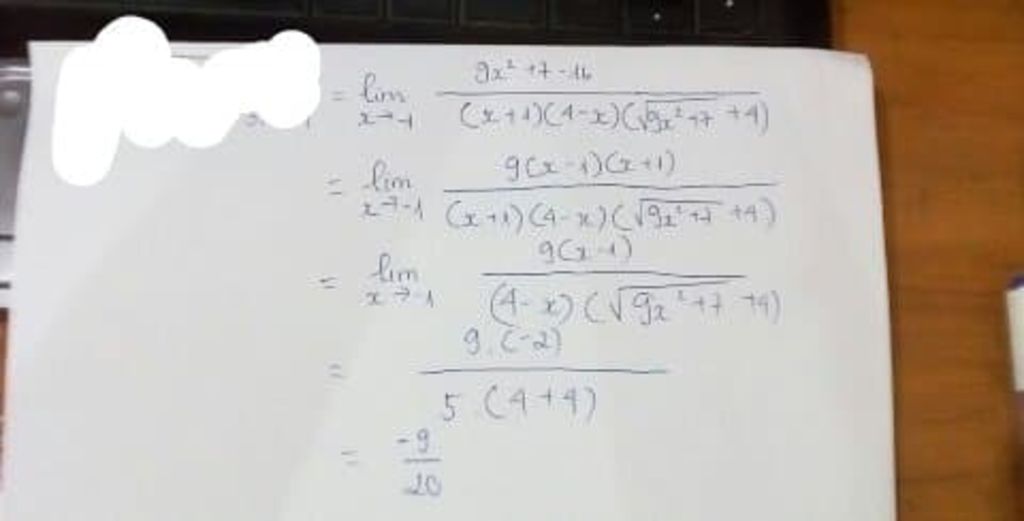 = lim x→-1 9x² +7 -16 / (x+1)(4-x)(√9x²+7 +4)
= lim x→-1 9(x-1)(x+1) / (x+1)(4-x)(√9x²+7 +4)
= lim x→-1 9(x-1) / (4-x)(√9x²+7 +4)
= 9.(-2) / 5 (4+4)
= -9 / 20